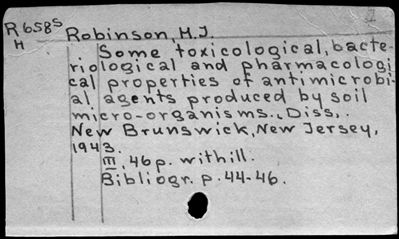 R658s Robinson, H.J.
H
Some toxicological, bacte-
riological and pharmacologi-
cal properties of antimicrobi-
al agents produced by soil
micro-organisms., Diss.,
New Brunswick, New Jersey,
1943.
III, 46p. with ill.
Bibliogr. p. 44-46.